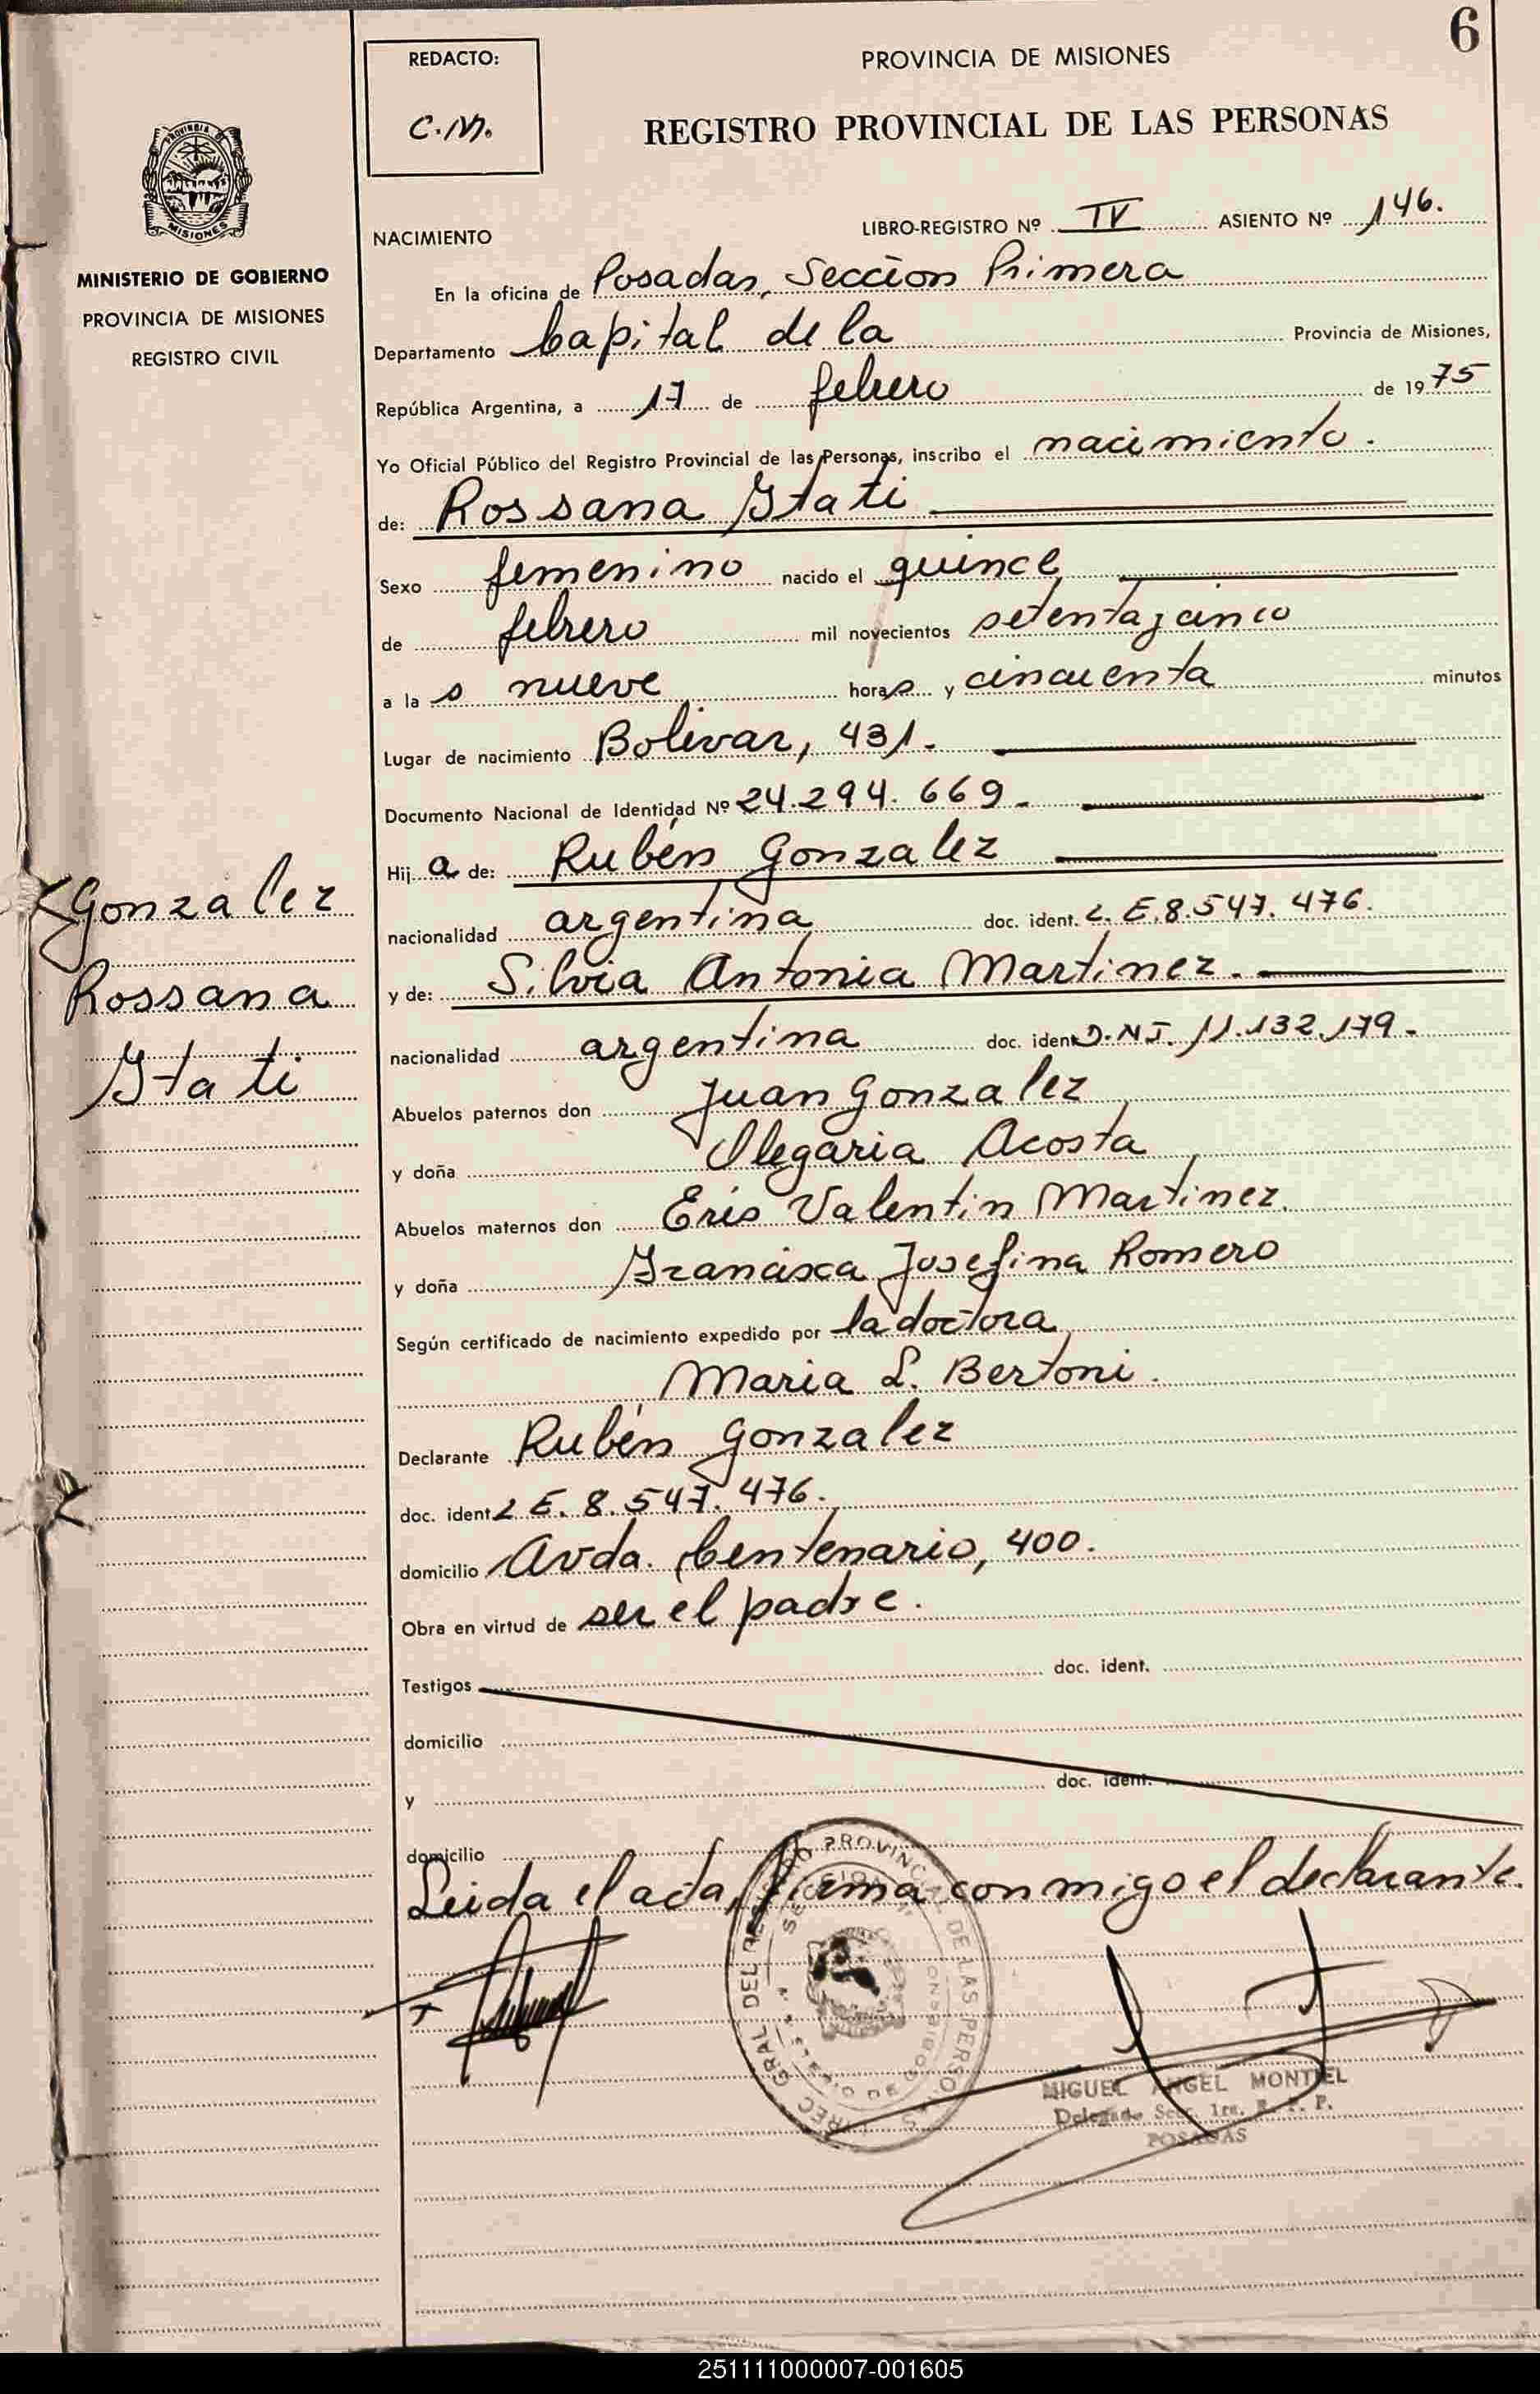 6
REDACTO:
C.M.
PROVINCIA DE MISIONES
REGISTRO PROVINCIAL DE LAS PERSONAS
PROVINCIA DE
MISIONES
MINISTERIO DE GOBIERNO
PROVINCIA DE MISIONES
REGISTRO CIVIL
NACIMIENTO
LIBRO-REGISTRO Nº IV ASIENTO Nº 146.
En la oficina de Posadas, Sección Primera
Departamento Capital de la Provincia de Misiones,
República Argentina, a 17 de febrero de 1975
Yo Oficial Público del Registro Provincial de las Personas, inscribo el nacimiento.
de: Rossana Itati
Sexo femenino nacido el quince
de febrero mil novecientos setenta y cinco
a las nueve horas y cincuenta minutos
Lugar de nacimiento Bolivar, 431.
Documento Nacional de Identidad Nº 24.294.669.
Hija de: Rubén Gonzalez
nacionalidad argentina doc. ident. L.E.8.547.476.
y de: Silvia Antonia Martinez.
nacionalidad argentina doc. ident D.N.I. 11.132.179.
Abuelos paternos don Juan Gonzalez
y doña Olegaria Acosta
Abuelos maternos don Eris Valentin Martinez.
y doña Francisca Josefina Romero
Según certificado de nacimiento expedido por la doctora
Maria L. Bertoni.
Declarante Rubén Gonzalez
doc. ident L.E. 8.547.476.
domicilio Avda. Centenario, 400.
Obra en virtud de ser el padre.
Testigos doc. ident.
domicilio
y doc. ident.
domicilio
Leida el acta, firma conmigo el declarante.
Gonzalez
Rossana
Itati
DIREC. GRAL DEL REGISTRO PROVINCIAL DE LAS PERSONAS
MIGUEL ANGEL MONTIEL
Delegado Secc. 1ra. R. P. P.
POSADAS
251111000007-001605